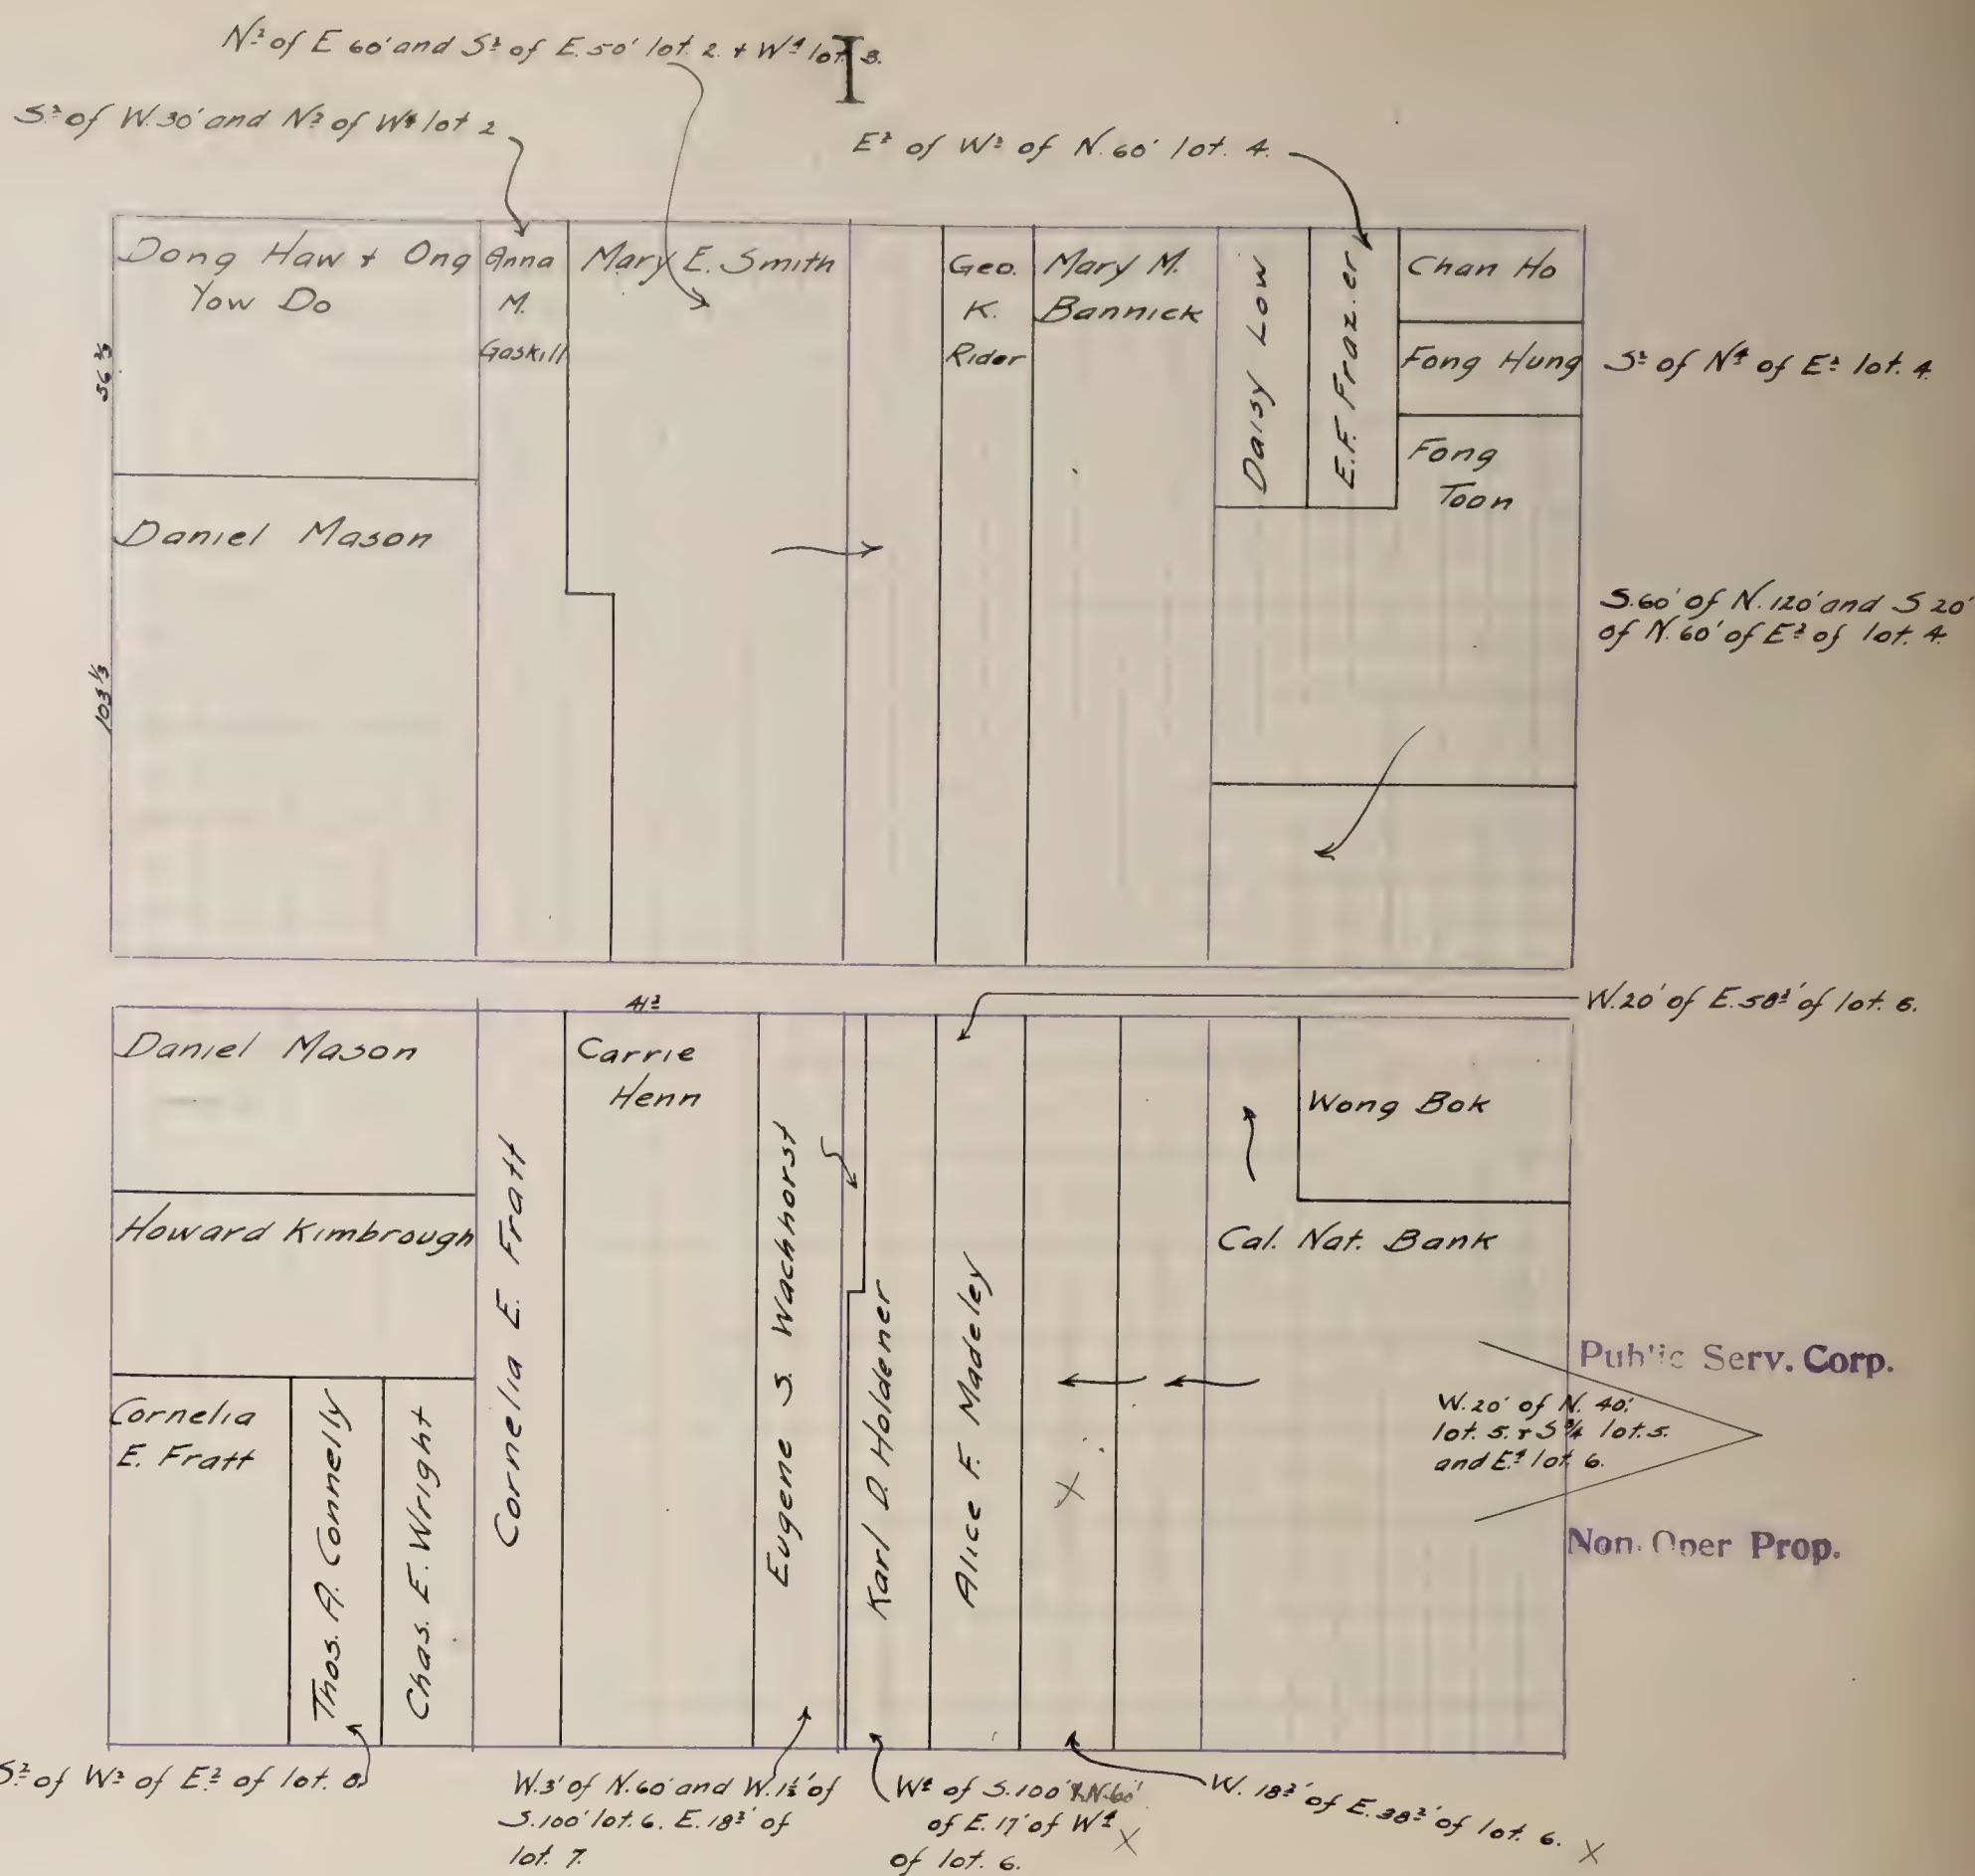 I
N½ of E 60' and S½ of E. 50' lot. 2. + W¼ lot 3.
S½ of W. 30' and N½ of W¼ lot 2
E½ of W½ of N. 60' lot. 4.
Dong Haw + Ong
Yow Do
Anna
M.
Gaskill
Mary E. Smith
Geo.
K.
Rider
Mary M.
Bannick
Daisy Low
E.F. Frazier
Chan Ho
Fong Hung
S½ of N¼ of E½ lot. 4.
Fong
Toon
56 ⅔
Daniel Mason
103 ⅓
S. 60' of N. 120' and S 20'
of N. 60' of E½ of lot. 4.
41½
W. 20' of E. 58½' of lot. 6.
Daniel Mason
Howard Kimbrough
Cornelia
E. Fratt
Thos. A. Connelly
Chas. E. Wright
Cornelia E. Fratt
Carrie
Henn
Eugene S. Wachhorst
Karl D. Holdener
Alice F. Madeley
X
Wong Bok
Cal. Nat. Bank
Public Serv. Corp.
W. 20' of N. 40'
lot. 5. + S ¾ lot. 5.
and E.¼ lot. 6.
Non. Oper Prop.
S½ of W½ of E½ of lot. 8
W. 3' of N. 60' and W. 1½' of
S. 100' lot. 6. E. 18½' of
lot. 7.
W¼ of S. 100' & N. 60'
of E. 17' of W¼ X
of lot. 6.
W. 18½' of E. 38½' of lot. 6. X